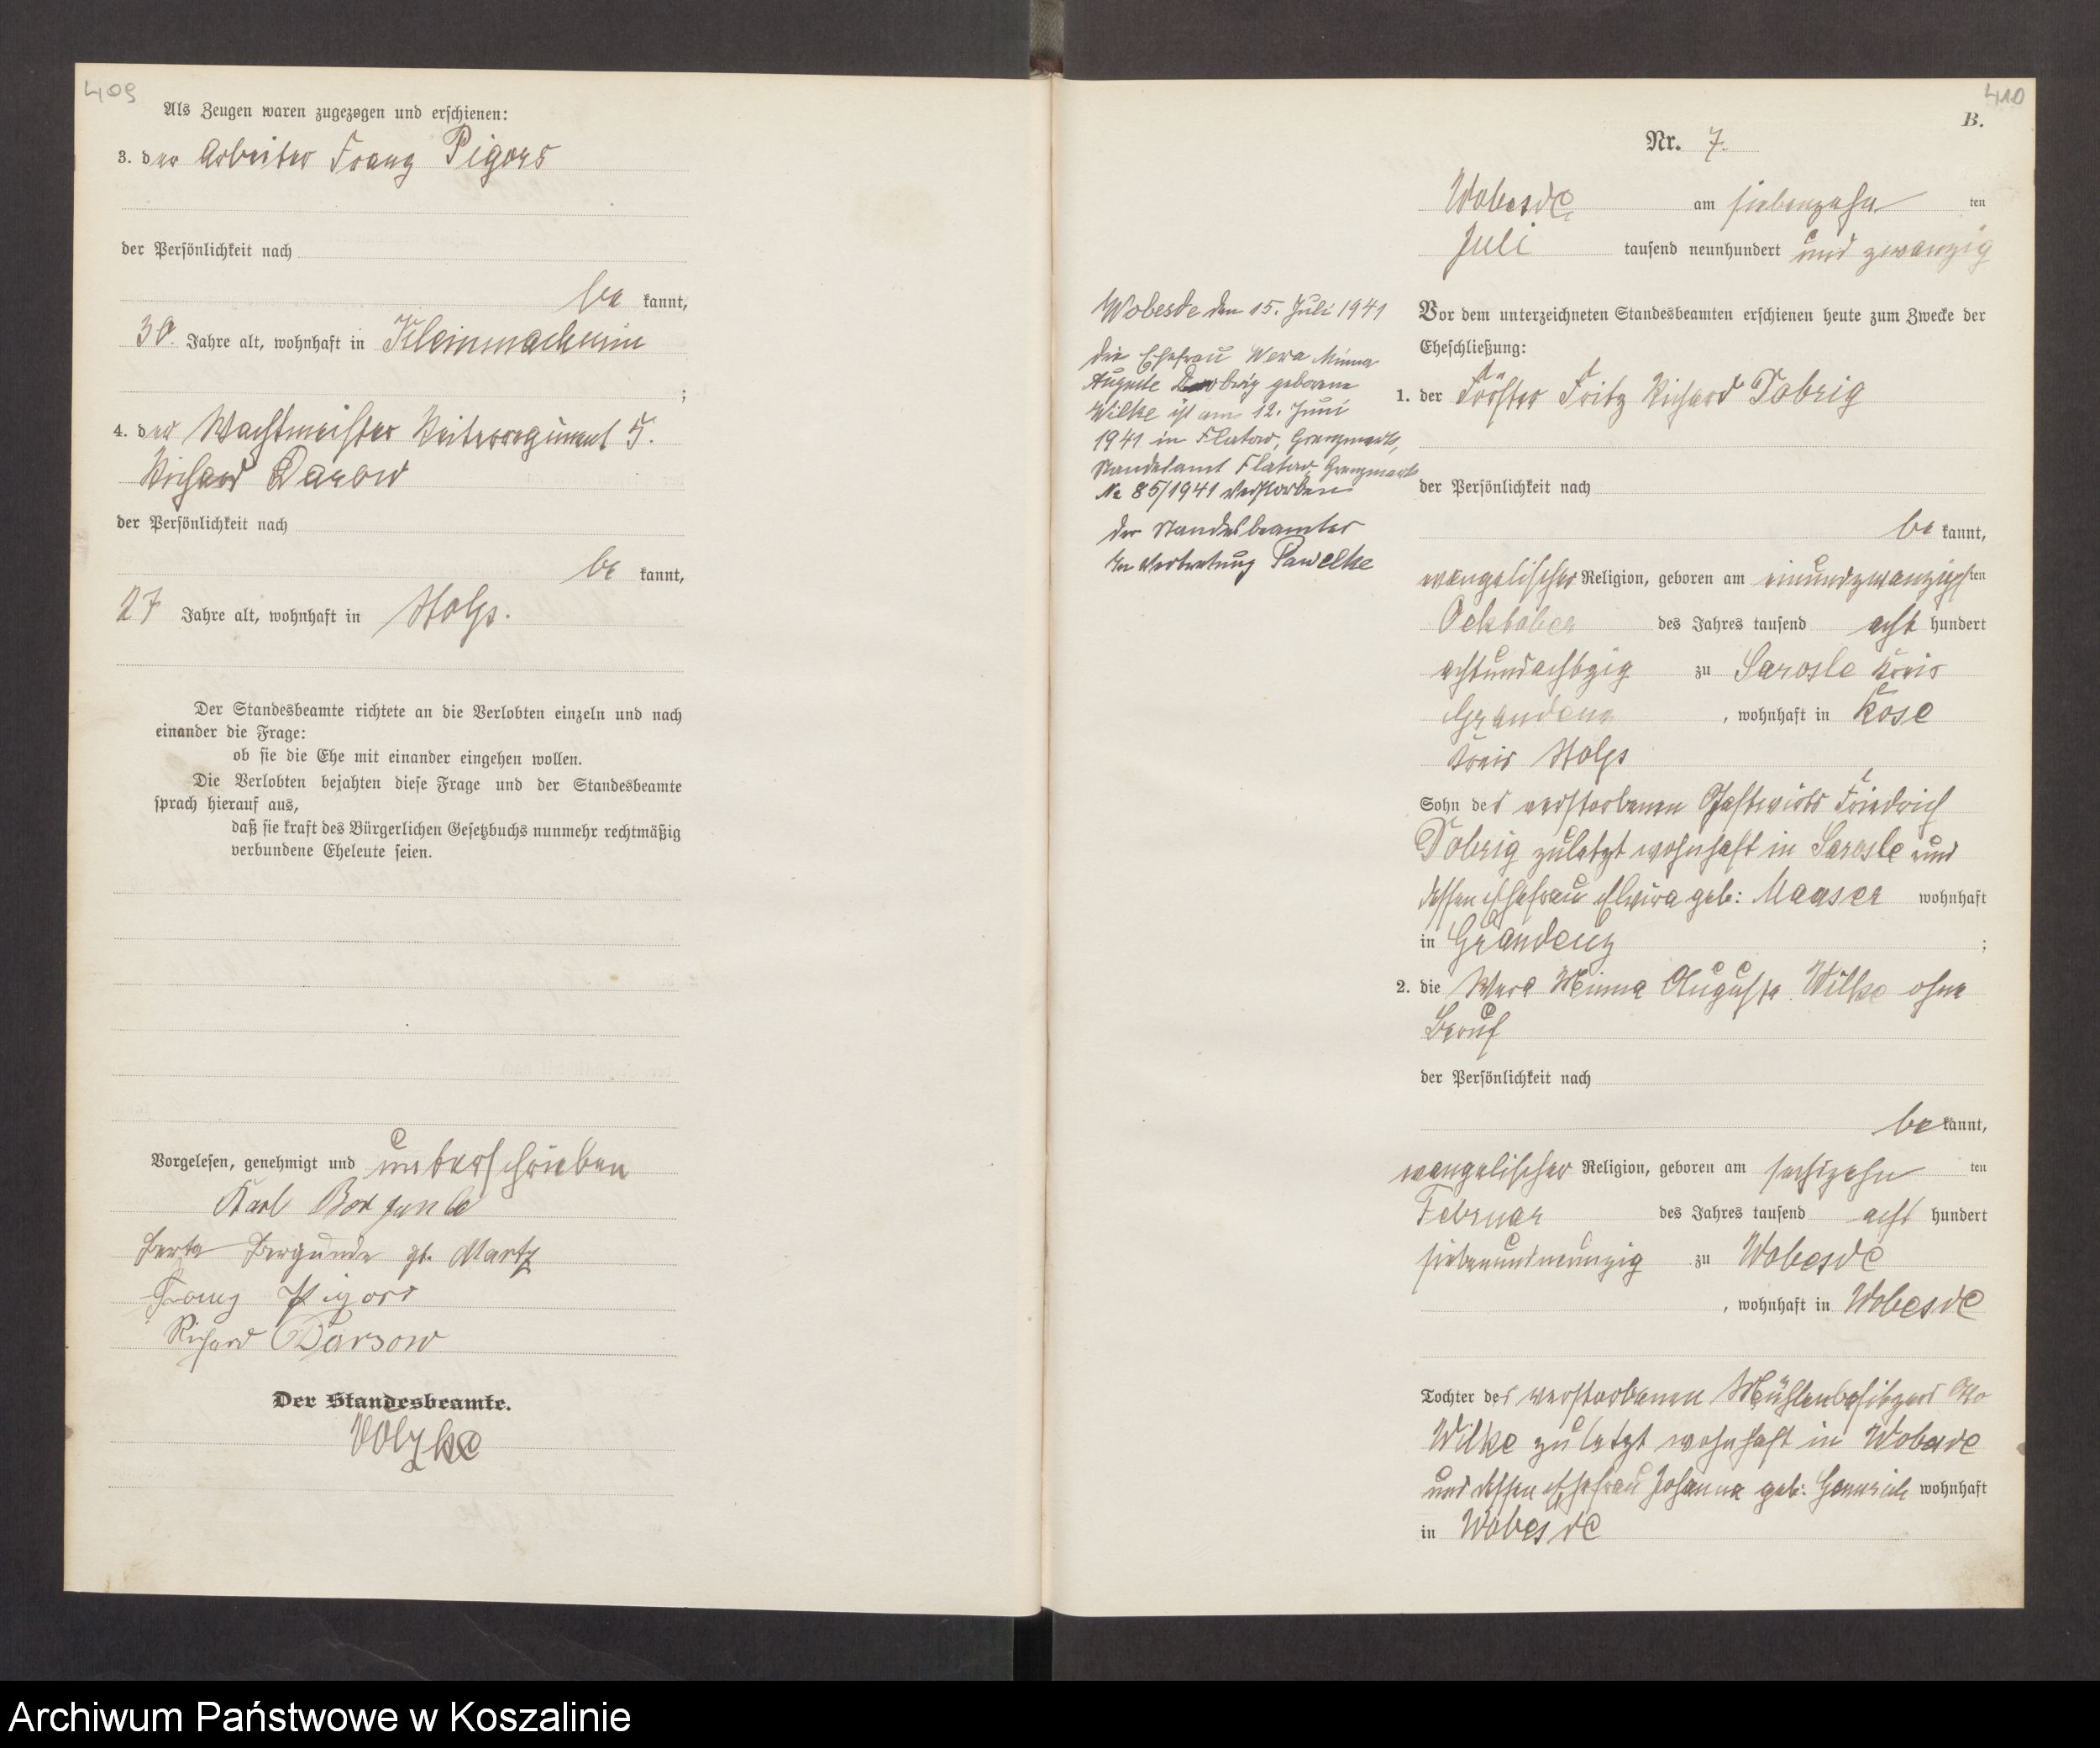 409
Als Zeugen waren zugezogen und erschienen:
3. der Arbeiter Franz Pigors
der Persönlichkeit nach
be kannt,
30. Jahre alt, wohnhaft in Kleinmachmin
;
4. der Wachtmeister Reiterregiment 5.
Richard Darow
der Persönlichkeit nach
be kannt,
27 Jahre alt, wohnhaft in Stolp.
Der Standesbeamte richtete an die Verlobten einzeln und nach
einander die Frage:
ob sie die Ehe mit einander eingehen wollen.
Die Verlobten bejahten diese Frage und der Standesbeamte
sprach hierauf aus,
daß sie kraft des Bürgerlichen Gesetzbuchs nunmehr rechtmäßig
verbundene Eheleute seien.
Vorgelesen, genehmigt und unterschrieben
Karl
Berta Bergunde gb. Martz
Franz Pigors
Richard Darsow
Der Standesbeamte.
Völzke
410
B.
Nr. 7.
Wobesde am siebenzehn ten
Juli tausend neunhundert und zwanzig
Wobesde den 15. Juli 1941
Die Ehefrau Wera Minna
Auguste geborene
Wilke ist am 12. Juni
1941 in Flatow, Grenzmark,
Standesamt Flatow Grenzmark
No 85/1941 verstorben
Der Standesbeamter
In Vertretung Pawelke
Vor dem unterzeichneten Standesbeamten erschienen heute zum Zwecke der
Eheschließung:
1. der Förster Fritz Richard Dobrig
der Persönlichkeit nach
be kannt,
evangelischer Religion, geboren am einundzwanzigsten
Oektober des Jahres tausend acht hundert
achtundachtzig zu Sarosle Kreis
Graudenz, wohnhaft in Kose
Kreis Stolp
Sohn des verstorbenen Gastwirts Friedrich
Dobrig zuletzt wohnhaft in Sarosle und
dessen Ehefrau Elwira geb: Maaser wohnhaft
in Graudenz ;
2. die Wera Minna Auguste Wilke ohne
Beruf
der Persönlichkeit nach
be kannt,
evangelischer Religion, geboren am sechszehn ten
Februar des Jahres tausend acht hundert
siebenundneunzig zu Wobesde
, wohnhaft in Wobesde
Tochter des verstorbenen Mühlenbesitzers Otto
Wilke zuletzt wohnhaft in Wobesde
und dessen Ehefrau Johanna geb: wohnhaft
in Wobesde
Archiwum Państwowe w Koszalinie